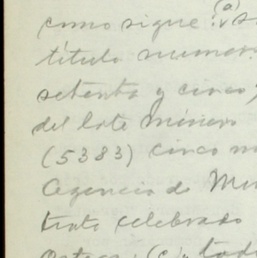 como sigue: (a) s
título numer
setenta y cinco;
del lote Minero
(5383) cinco m
Agencia de Min
trato celebrado
(c), tod